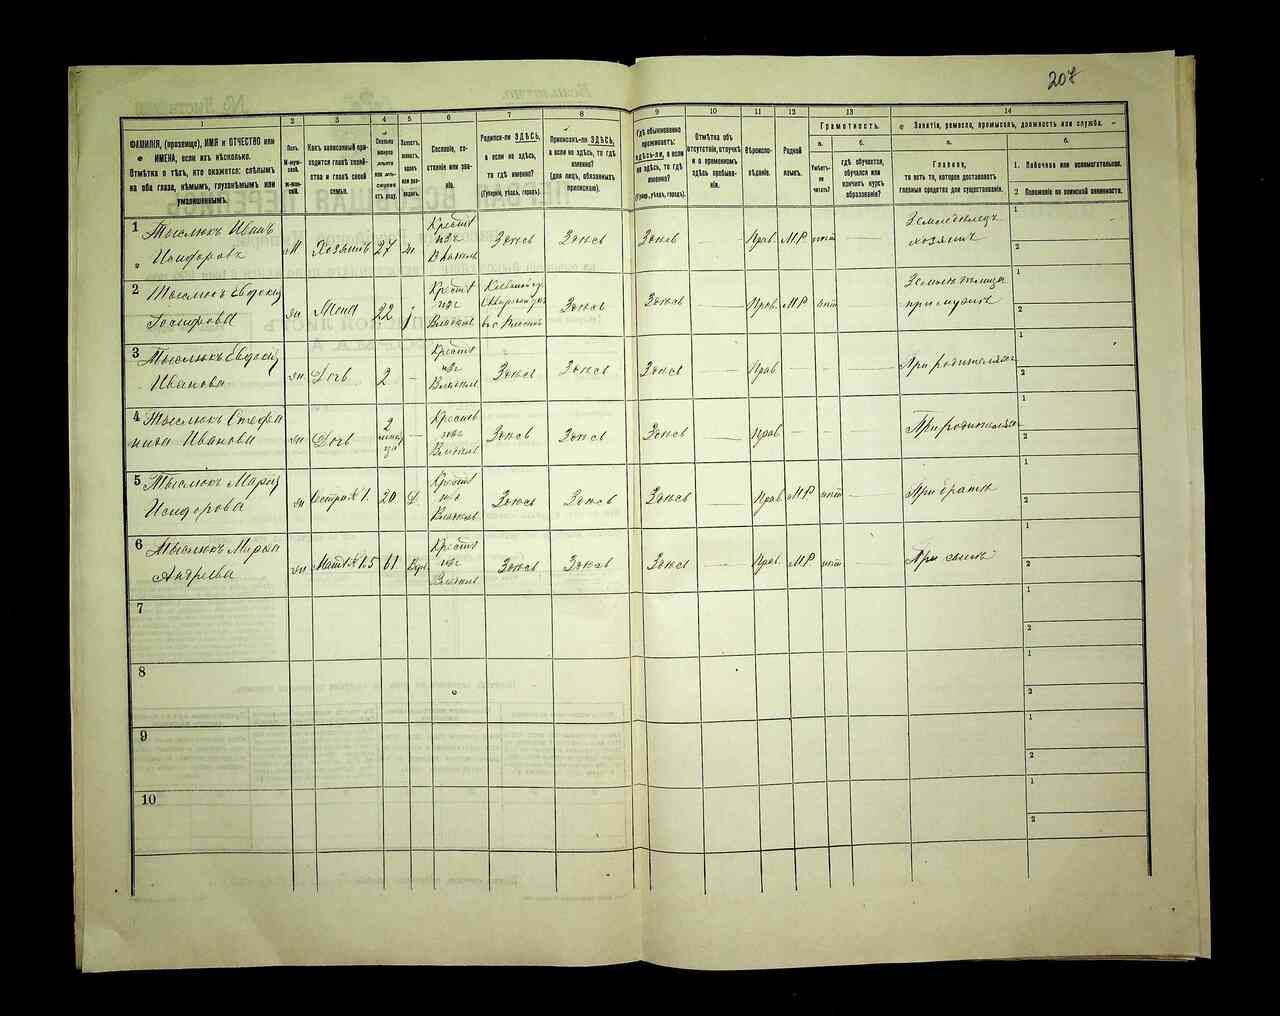 207
1 2 3 4 5 6 7 8 9 10 11 12 13 14
ФАМИЛІЯ, (прозвище), ИМЯ и ОТЧЕСТВО или ИМЕНА, если ихъ нѣсколько.
Отмѣтка о тѣхъ, кто окажется: слѣпымъ на оба глаза, нѣмымъ, глухонѣмымъ или умалишеннымъ.
Полъ.
М-мужской.
Ж-женскій.
Какъ записанный приходится главѣ хозяйства и главѣ своей семьи.
Сколько минуло лѣтъ или мѣсяцевъ отъ роду.
Холостъ, женатъ, вдовъ или разведенъ.
Сословіе, состояніе или званіе.
Родился-ли ЗДѢСЬ, а если не здѣсь, то гдѣ именно?
(Губернія, уѣздъ, городъ).
Приписанъ-ли ЗДѢСЬ, а если не здѣсь, то гдѣ именно?
(для лицъ, обязанныхъ припискою).
Гдѣ обыкновенно проживаетъ: ЗДѢСЬ-ли, а если не здѣсь, то гдѣ именно?
(Губер., уѣздъ, городъ).
Отмѣтка объ отсутствіи, отлучкѣ и о временномъ здѣсь пребываніи.
Вѣроисповѣданіе.
Родной языкъ.
Грамотность.
а.
Умѣетъ-ли читать?
б.
гдѣ обучается, обучался или кончилъ курсъ образованія?
Занятіе, ремесло, промыселъ, должность или служба.
а.
Главное,
то есть то, которое доставляетъ главныя средства для существованія.
б.
1. Побочное или вспомогательное.
2 Положеніе по воинской повинности.
1 Тыслюкъ Иванъ Исидоровъ М Хозяинъ 27 ж. Крестьян изъ Владѣль Здѣсь Здѣсь Здѣсь — Прав. МР нѣт — Земледѣлецъ хозяинъ 1 2
2 Тыслюкъ Евдокия Иосифова Жена 22 Здѣсь Здѣсь — Прав. МР нѣт — при мужѣ 1 2
3 Тыслюкъ Иванова Дочь 2 — Здѣсь Здѣсь Здѣсь — Прав — — — При родителяхъ 1 2
4 Тыслюкъ Стефанида Иванова Дочь 2 мѣсяца — Здѣсь Здѣсь Здѣсь — Прав — — — При родителяхъ 1 2
5 Тыслюкъ Мария Исидорова Сестра №1. 20 Д. Здѣсь Здѣсь Здѣсь — Прав МР нѣт — При братѣ 1 2
6 Тыслюкъ Андреева Мать №1.5 61 Вдв. Здѣсь Здѣсь Здѣсь — Прав. МР нѣт — При сынѣ 1 2
7 1 2
8 1 2
9 1 2
10 1 2